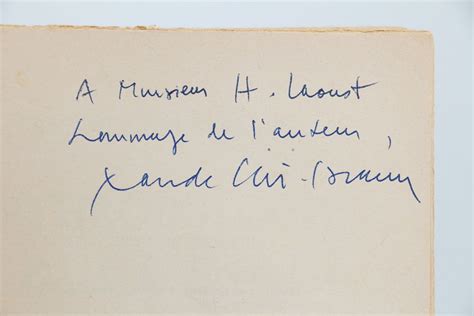 A Monsieur H. Laoust
hommage de l'auteur,
Claude Lévi-Strauss